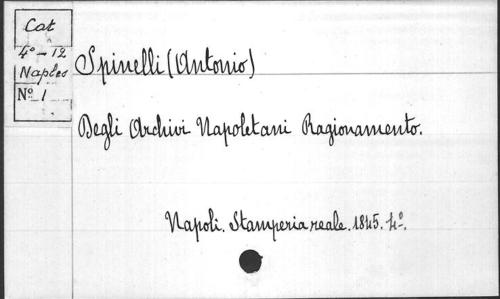 Cat
4º-12
Naples
Nº 1
Spinelli (Antonio)
Degli Archivi Napoletani Ragionamento.
Napoli. Stamperia reale. 1845. 4º.